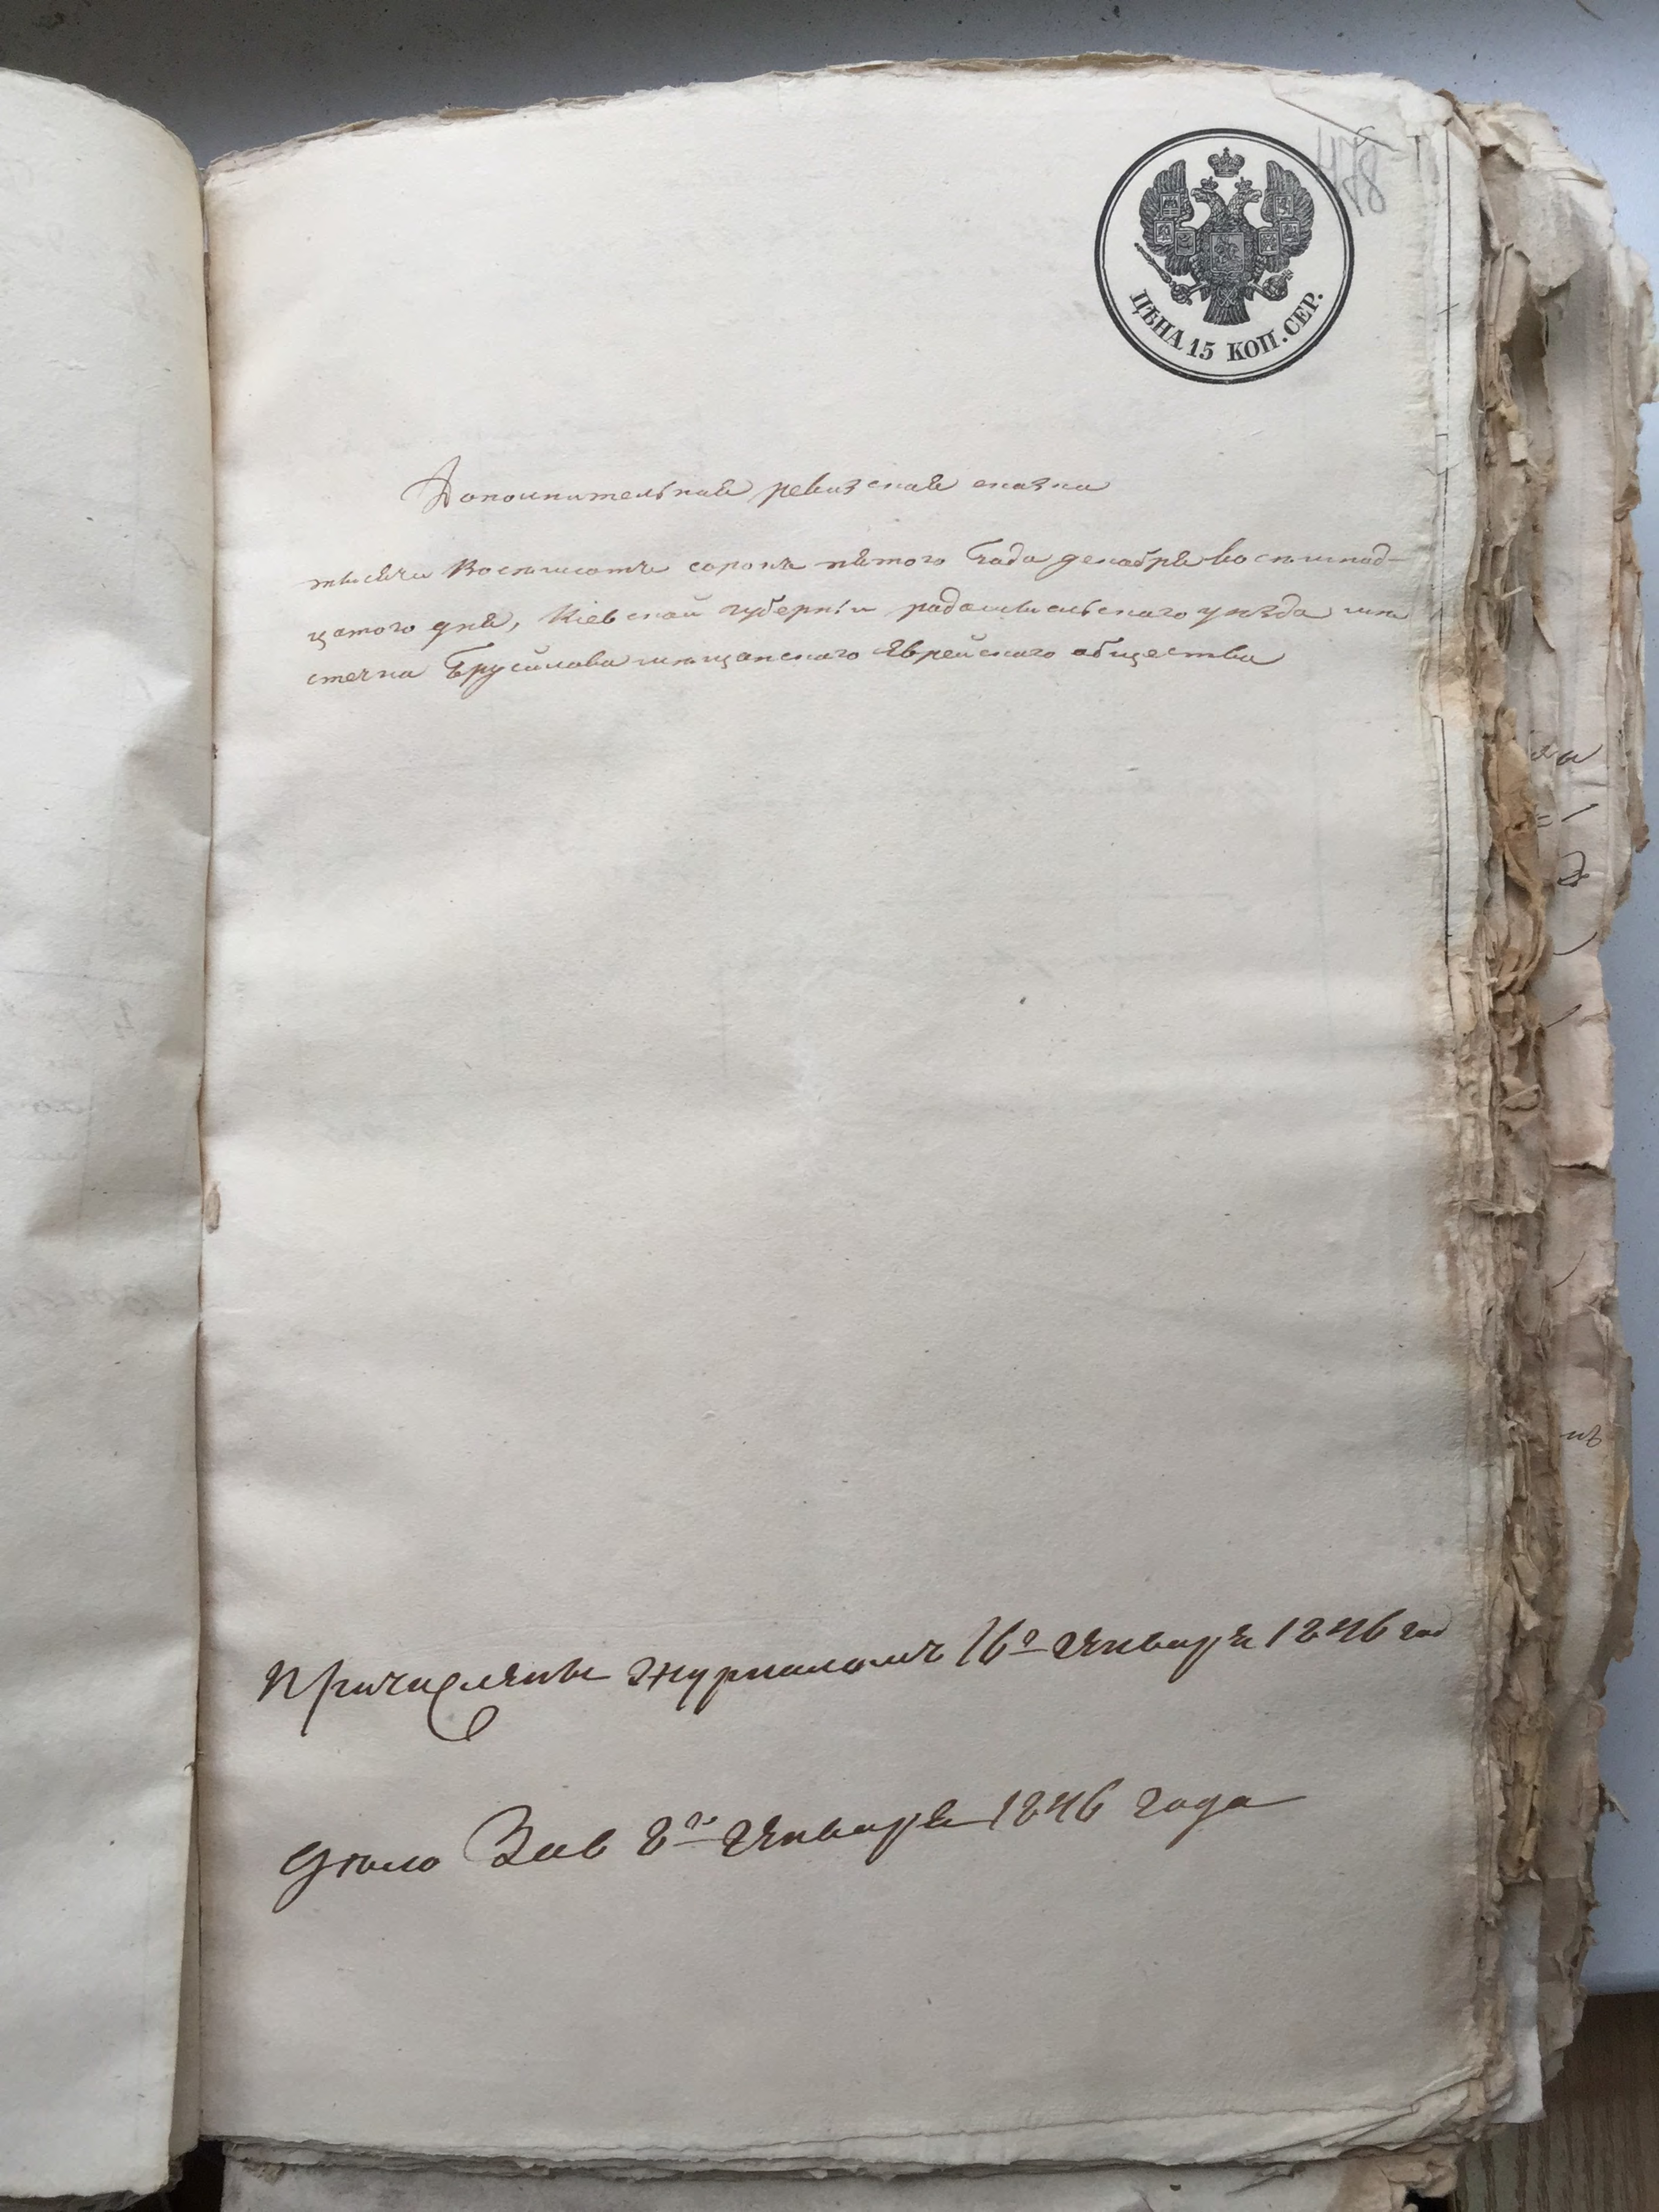 478
ЦѢНА 15 КОП. СЕР.
Дополнительная ревизская сказка
тысяча восемьсотъ сорокъ пятого Года декабря восемнад-
цатого дня, Кіевской губерніи радомысльскаго уѣзда мѣ
стечка Брусилова мѣщанского Еврейского общества
Причислены Журналомъ 16го Января 1846 год
Дѣло 8го Января 1846 года